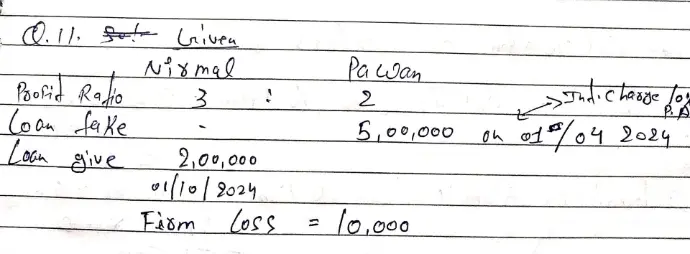 Q.11. Sol:- Given
Nirmal Pawan
Profit Ratio 3 : 2
Loan take - 5,00,000 on 01st/04 2024 → Ind. Charge 10% P.A
Loan give 2,00,000
01/10/2024
Firm Loss = 10,000